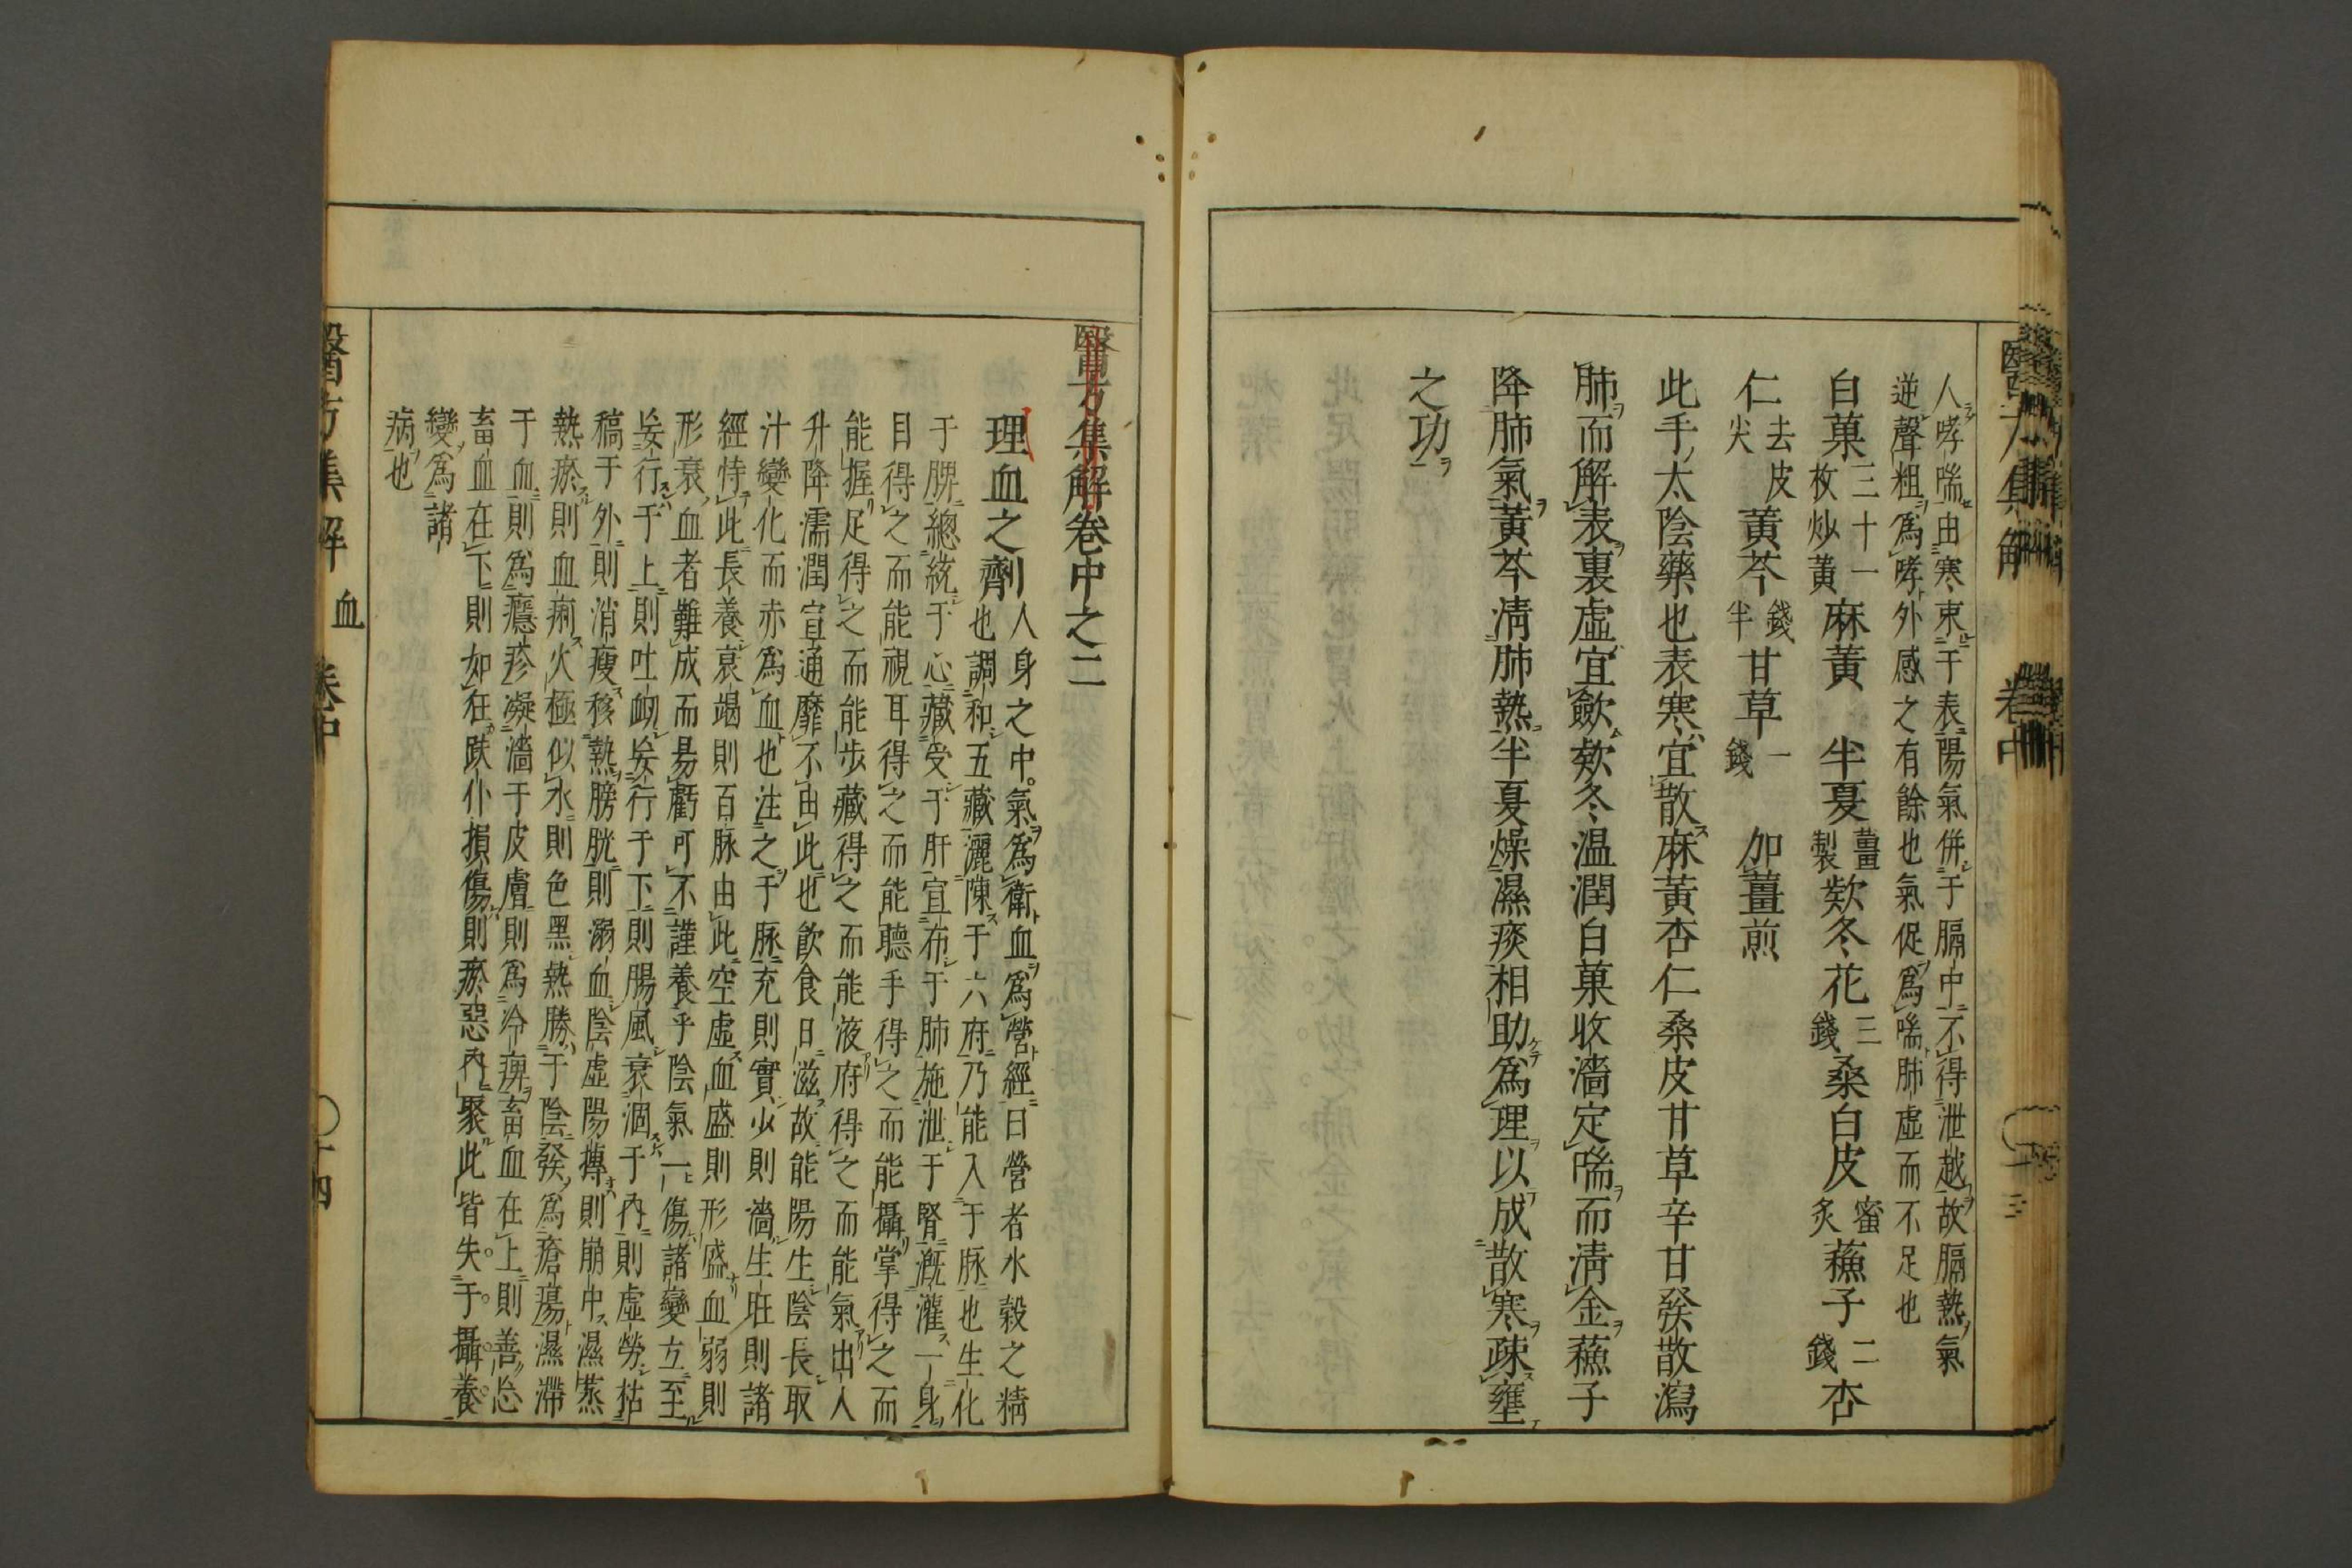 人哮喘由寒束于表陽氣併于膈中不得泄越故膈熱氣
逆聲粗爲哮外感之有餘也氣促爲喘肺虛而不足也
白菓三十一枚炒黃麻黃半夏薑製欵冬花三錢桑白皮蜜炙蘓子二錢杏
仁去皮尖黃芩錢半甘草一錢加薑煎
此手太陰藥也表寒宜散麻黃杏仁桑皮甘草辛甘發散瀉
肺而解表裏虛宜歛欵冬温潤白菓收濇定喘而清金蘓子
降肺氣黃芩清肺熱半夏燥濕痰相助爲理以成散寒疎壅
之功
醫方集解卷中之二
理血之劑人身之中氣爲衛血爲營經曰營者水穀之精
也調和五藏灑陳于六府乃能入于脉也生化
于脾總統于心藏受于肝宣布于肺施泄于腎漑灌一身
目得之而能視耳得之而能聽手得之而能攝掌得之而
能握足得之而能步藏得之而能液府得之而能氣出入
升降濡潤宣通靡不由此也飲食日滋故能陽生陰長取
汁變化而赤爲血也注之于脉充則實少則濇生旺則諸
經恃此長養衰竭則百脉由此空虛血盛則形盛血弱則
形衰血者難成而易虧可不謹養乎陰氣一傷諸變立至
妄行于上則吐衂妄行于下則腸風衰涸于內則虛勞枯
稿于外則消瘦移熱膀胱則溺血陰虛陽摶則崩中濕蒸
熱瘀則血痢火極似水則色黑熱勝于陰發爲瘡瘍濕滯
于血則爲癮疹凝濇于皮膚則爲冷痺畜血在上則善忘
畜血在下則如狂跌仆損傷則瘀惡內聚此皆失于攝養
變爲諸
病也
醫方集解 血 卷中 十四